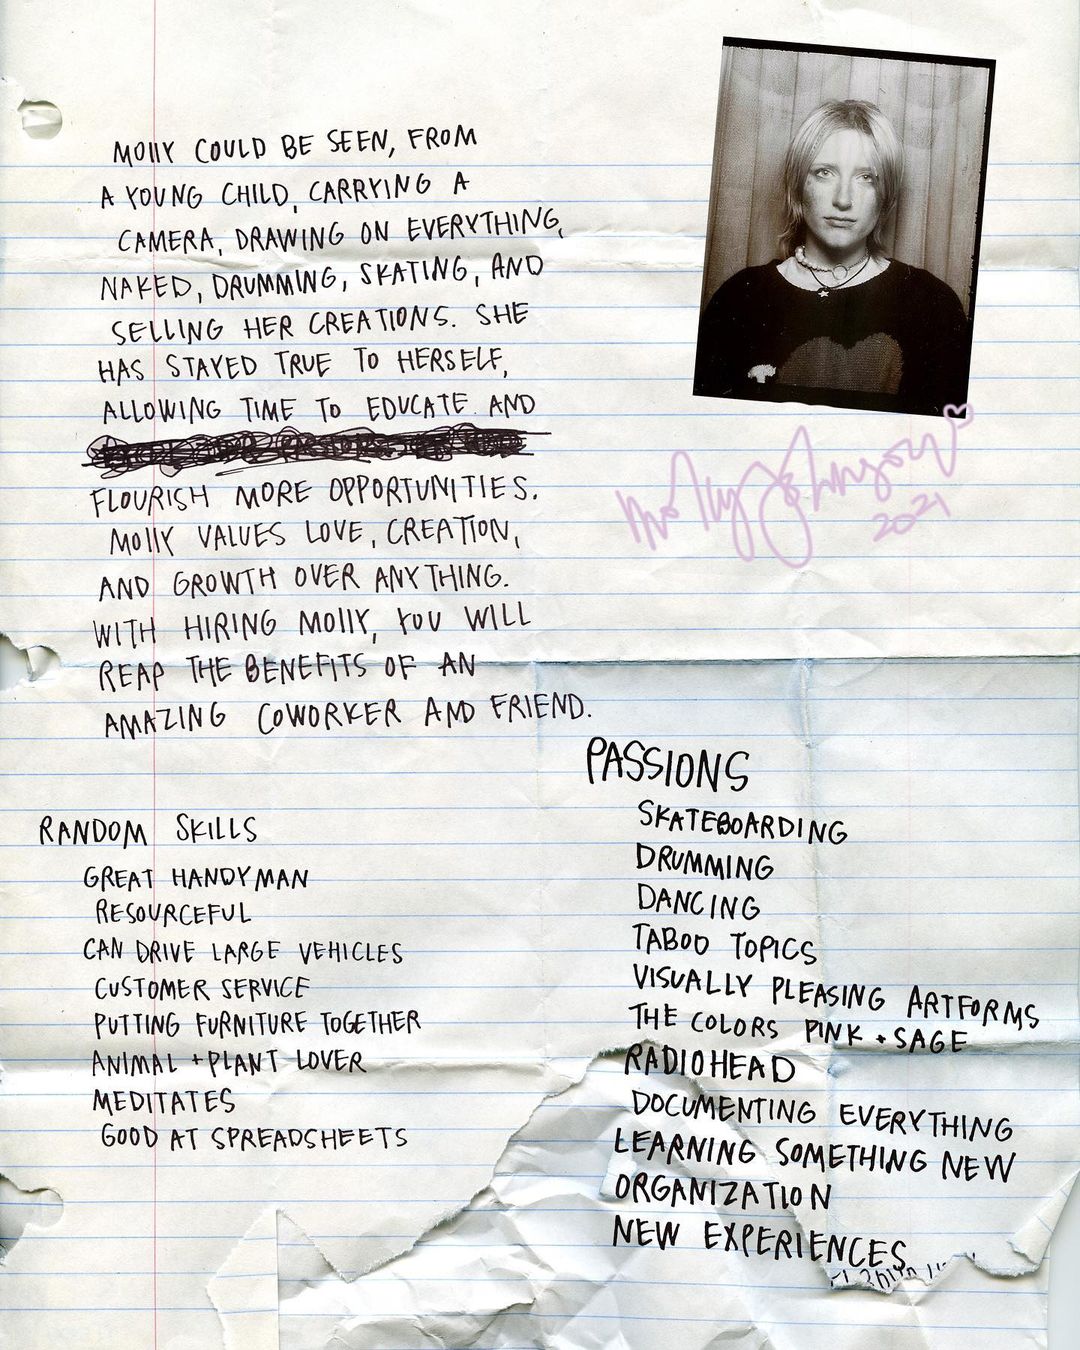 MOLLY COULD BE SEEN, FROM
A YOUNG CHILD, CARRYING A
CAMERA, DRAWING ON EVERYTHING,
NAKED, DRUMMING, SKATING, AND
SELLING HER CREATIONS. SHE
HAS STAYED TRUE TO HERSELF,
ALLOWING TIME TO EDUCATE AND
FLOURISH MORE OPPORTUNITIES.
MOLLY VALUES LOVE, CREATION,
AND GROWTH OVER ANYTHING.
WITH HIRING MOLLY, YOU WILL
REAP THE BENEFITS OF AN
AMAZING COWORKER AND FRIEND.
Molly Johnson
2021
RANDOM SKILLS
GREAT HANDYMAN
RESOURCEFUL
CAN DRIVE LARGE VEHICLES
CUSTOMER SERVICE
PUTTING FURNITURE TOGETHER
ANIMAL + PLANT LOVER
MEDITATES
GOOD AT SPREADSHEETS
PASSIONS
SKATEBOARDING
DRUMMING
DANCING
TABOO TOPICS
VISUALLY PLEASING ARTFORMS
THE COLORS PINK + SAGE
RADIOHEAD
DOCUMENTING EVERYTHING
LEARNING SOMETHING NEW
ORGANIZATION
NEW EXPERIENCES